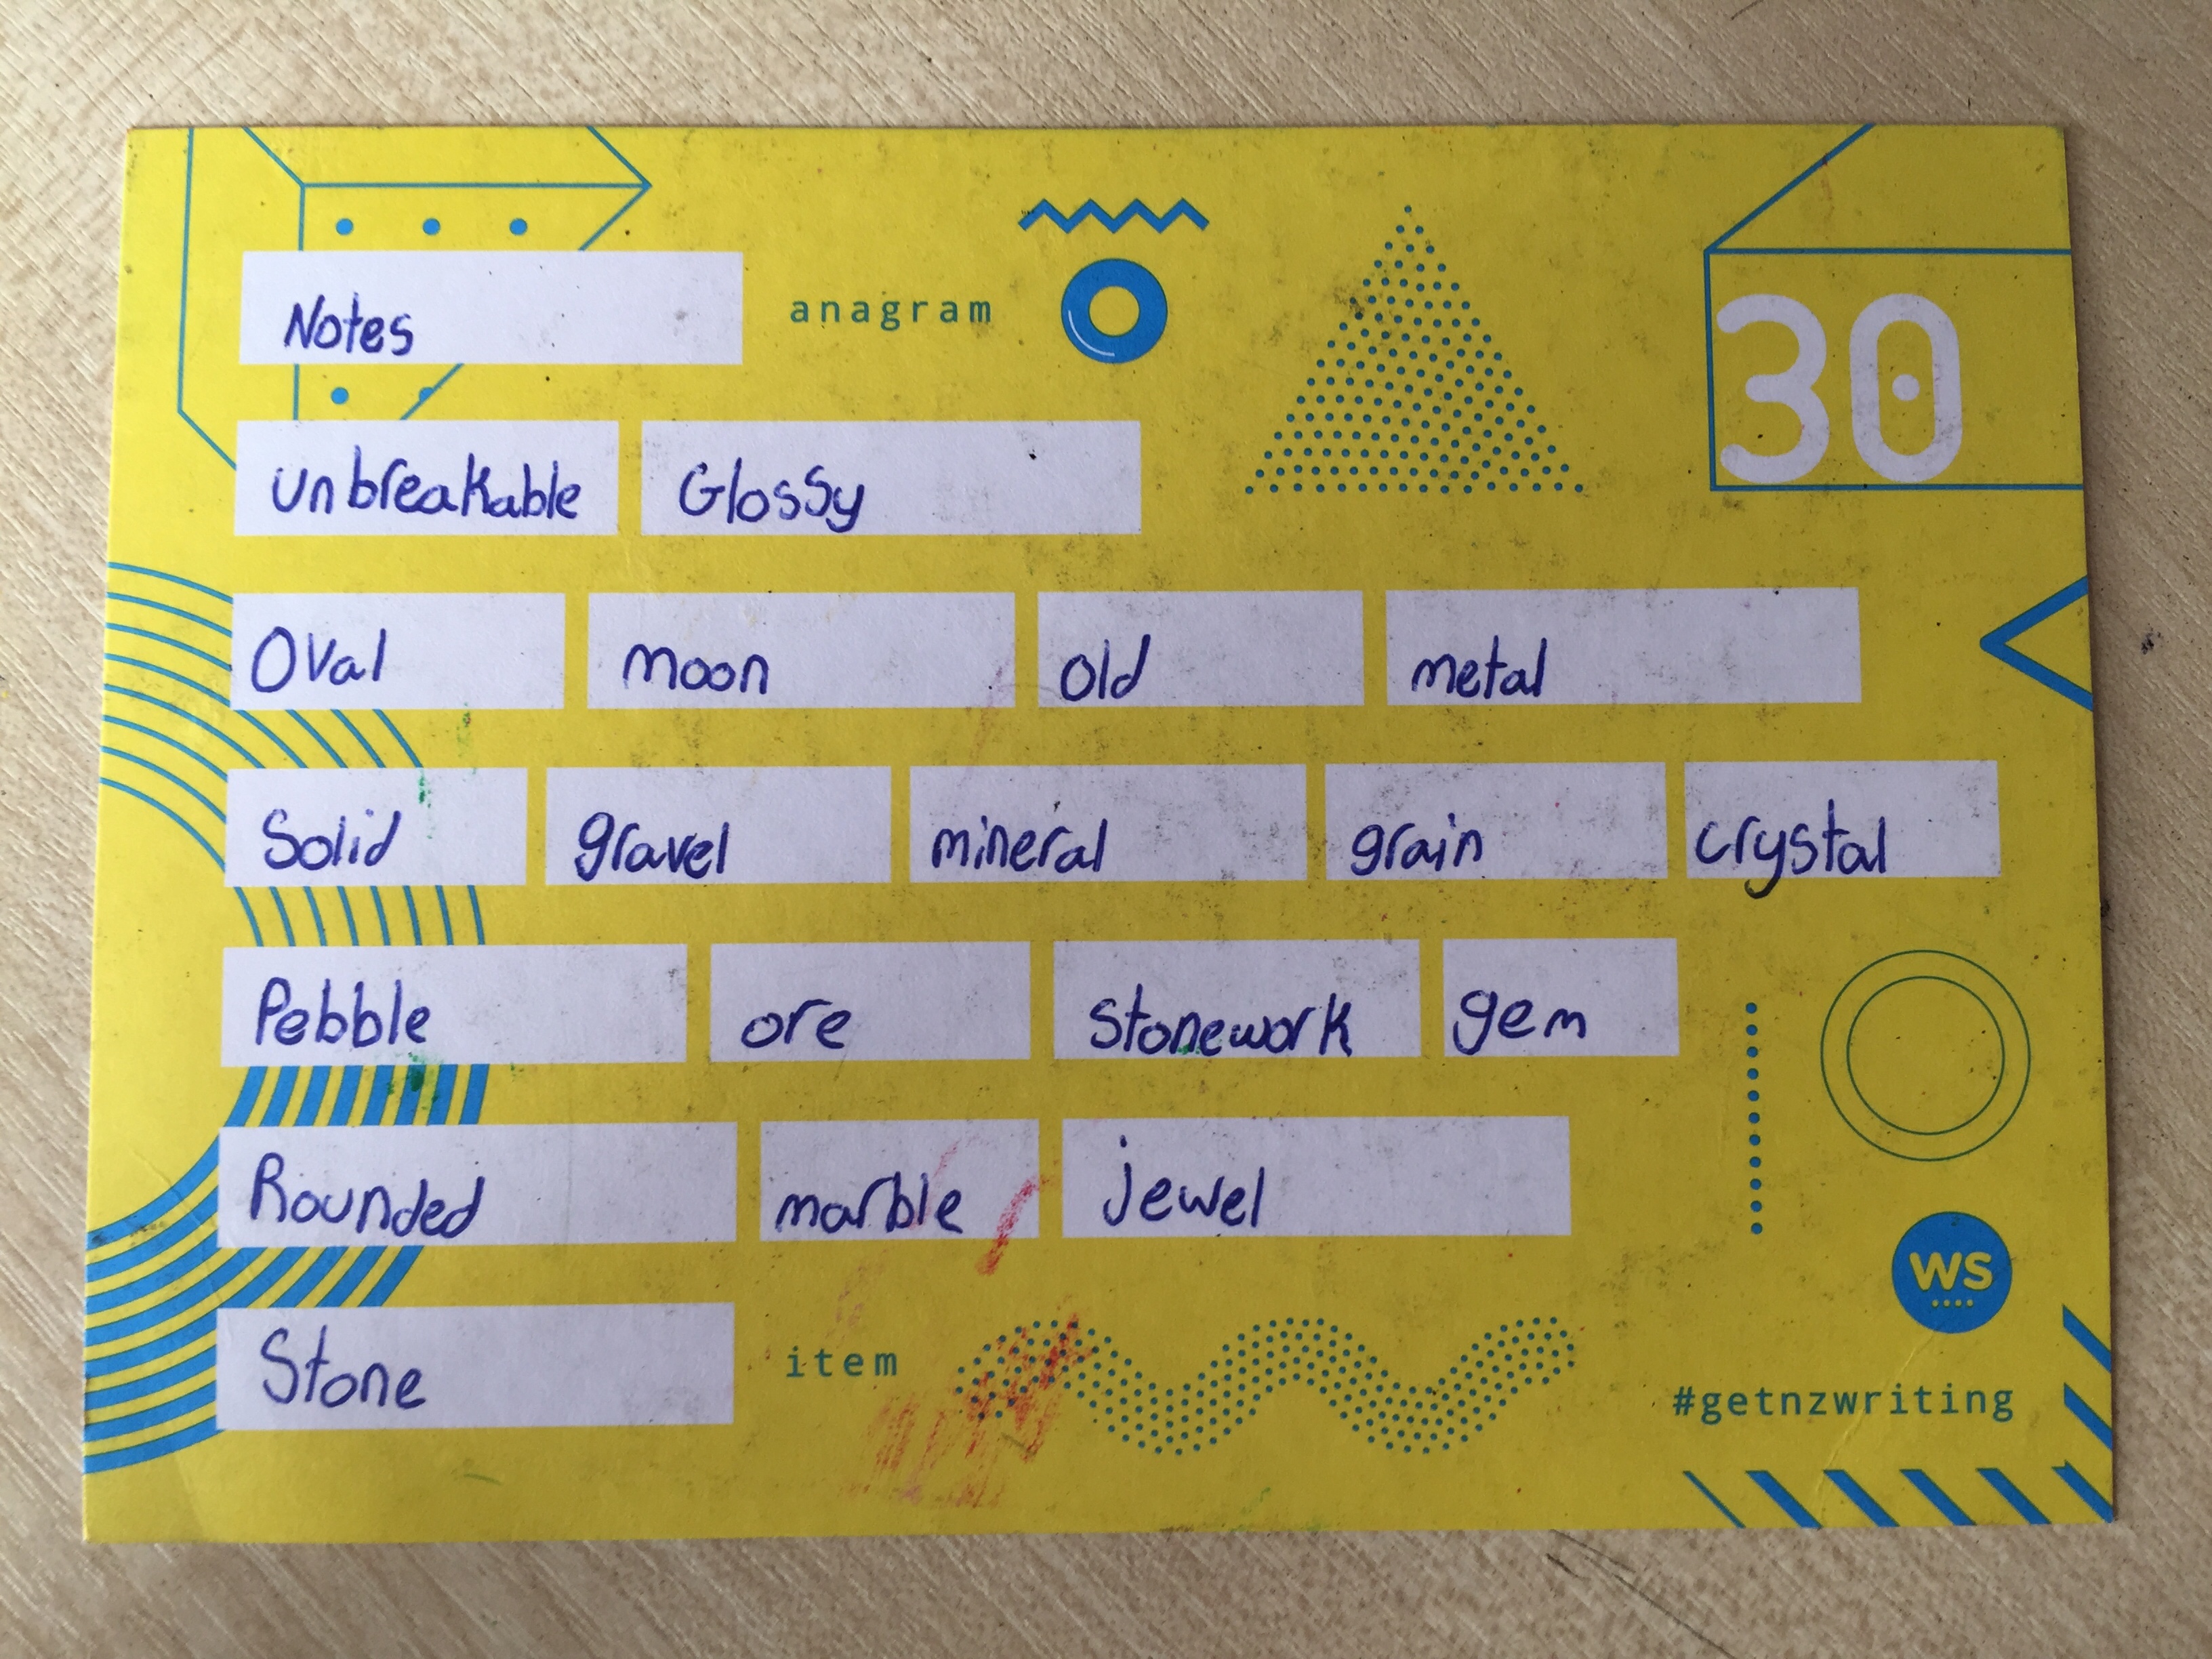 Notes anagram
30
unbreakable Glossy
Oval moon old metal
Solid gravel mineral grain crystal
Pebble ore stonework gem
Rounded marble jewel
WS
Stone item
#getnzwriting